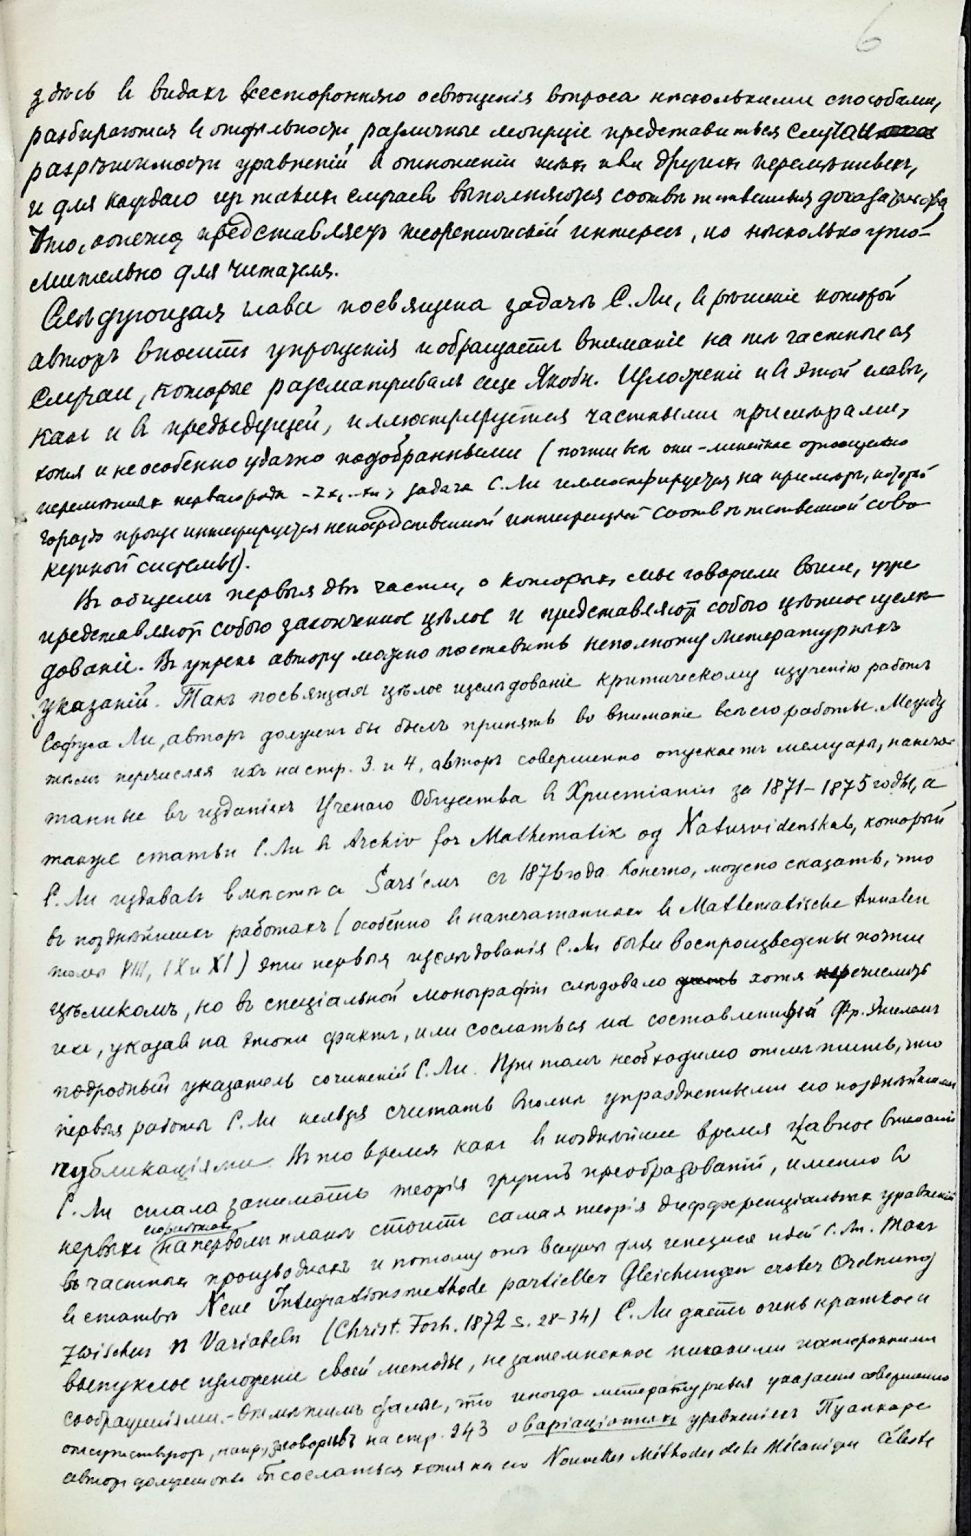 6
здѣсь въ видахъ всесторонняго освѣщенія вопроса нѣсколькими способами,
разбираются въ отдѣльности различные могущіе представиться случаи
разрѣшимости уравненій въ отношеніи тѣхъ или другихъ перемѣнныхъ,
и для каждаго изъ такихъ случаевъ выполняются соотвѣтственныя доказательства
Это, конечно, представляетъ теоретическій интересъ, но нѣсколько уто-
мительно для читателя.
Слѣдующая глава посвящена задачѣ С. Ли, въ рѣшеніе которой
авторъ вноситъ упрощенія и обращаетъ вниманіе на тѣ частные
случаи, которые разсматривалъ еще Якоби. Изложеніе и въ этой главѣ,
какъ и въ предыдущей, иллюстрируется частными примѣрами,
хотя и не особенно удачно подобранными (почти всѣ они - линейные относительно
перемѣнныхъ перваго рода задача С. Ли иллюстрируется на примѣрѣ, который
гораздо проще интегрируется непосредственной интеграціей соотвѣтственной сово-
купной системы).
Въ общемъ первыя двѣ части, о которыхъ мы говорили выше, уже
представляютъ собою законченное цѣлое и представляютъ собою цѣнное изслѣ-
дованіе. Въ упрекъ автору можно поставить неполноту литературныхъ
указаній. Такъ посвящая цѣлое изслѣдованіе критическому изученію работъ
Софуса Ли, авторъ долженъ бы былъ принять во вниманіе всѣ его работы. Между
тѣмъ перечисляя ихъ на стр. 3 и 4, авторъ совершенно опускаетъ мемуары, напеча-
танные въ изданіяхъ Ученаго Общества въ Христіаніи за 1871-1875 годы, а
также статьи С. Ли въ Archiv for Mathematik og Naturvidenskab, который
С. Ли издавалъ вмѣстѣ съ Sars'омъ съ 1876 года. Конечно, можно сказать, что
въ позднѣйшихъ работахъ (особенно въ напечатанныхъ въ Mathematische Annalen
томы VIII, IX и XI) эти первыя изслѣдованія С. Ли были воспроизведены почти
цѣликомъ, но въ спеціальной монографіи слѣдовало хотя перечислить
ихъ, указавъ на этотъ фактъ, или сослаться на составленный Фр. Энгелемъ
подробный указатель сочиненій С. Ли. При томъ необходимо отмѣтить, что
первыя работы С. Ли нельзя считать вполнѣ упраздненными его позднѣйшими
публикаціями. Въ то время какъ въ позднѣйшее время главное вниманіе
С. Ли стала занимать теорія группъ преобразованій, именно въ
первыхъ на первомъ планѣ стоитъ самая теорія дифференціальныхъ уравненій
въ частныхъ производныхъ и потому онѣ важны для генезиса идей С. Ли. Такъ
въ статьѣ Neue Integrationsmethode partieller Gleichungen erster Ordnung
zwischen n Variabeln (Christ. Forh. 1872 S. 28-34) С. Ли даетъ очень краткое и
выпуклое изложеніе своей методы, не затемненное никакими посторонними
соображеніями. - Отмѣтимъ далѣе, что иногда литературныя указанія совершенно
отсутствуютъ, напр., заговоривъ на стр. 243 о варіаціонныхъ уравненіяхъ Пуанкаре
авторъ долженъ бы сослаться хотя на его Nouvelles Méthodes de la Mécanique Céleste